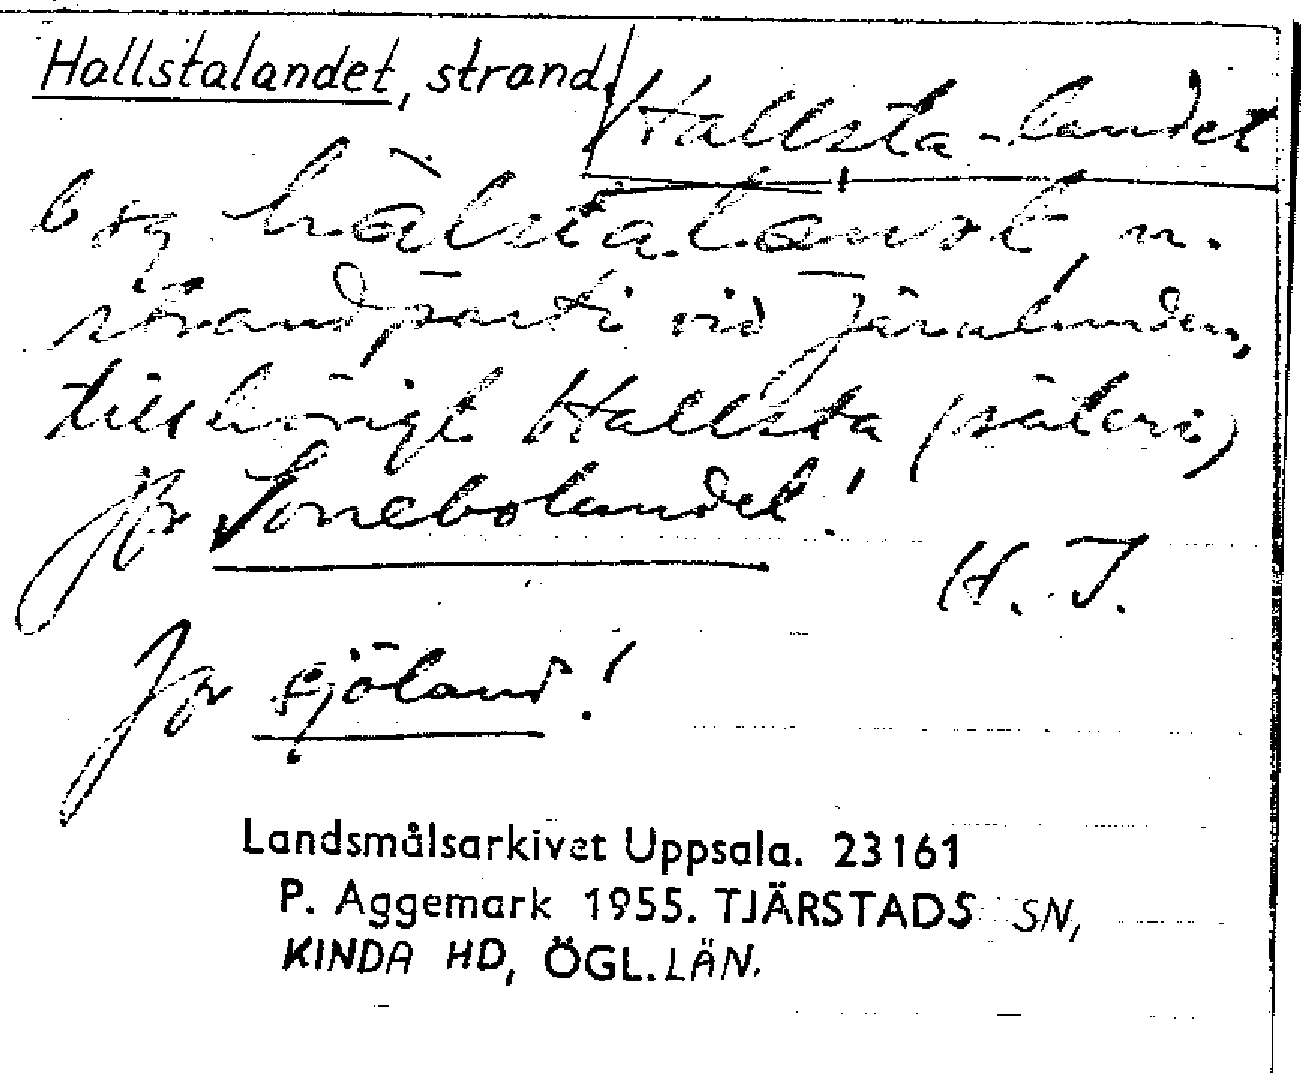 Hallstalandet, strand.
Hallsta-landet
strandparti vid Järnlunden,
tillhörigt Hallsta (säteri)
jfr Tonebolandet!
H. J.
Jfr sjöland!
Landsmålsarkivet Uppsala. 23161
P. Aggemark 1955. TJÄRSTADS SN,
KINDA HD, ÖGL. LÄN.